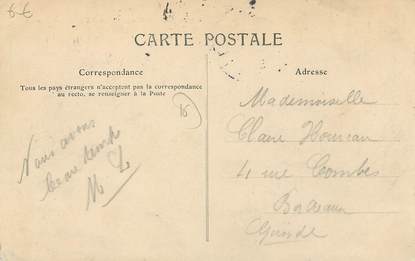 6€
CARTE POSTALE
Correspondance
Tous les pays étrangers n'acceptent pas la correspondance
au recto, se renseigner à la Poste
Adresse
Mademoiselle
Claire
4 rue Combes
Bordeaux
Gironde
15
Nous avons
beau temps
M L